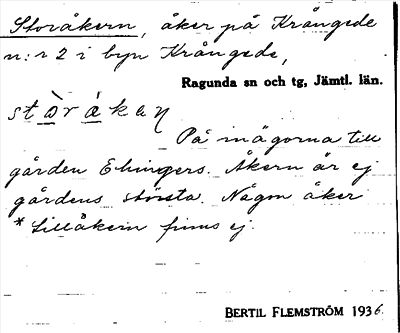 Storåkern, åker på Krångede
n:r 2 i byn Krångede,
Ragunda sn och tg, Jämtl. län.
På inägorna till
gården Ehingers. Åkern är ej
gårdens största. Någon åker
*Lillåkern finns ej.
BERTIL FLEMSTRÖM 1936.